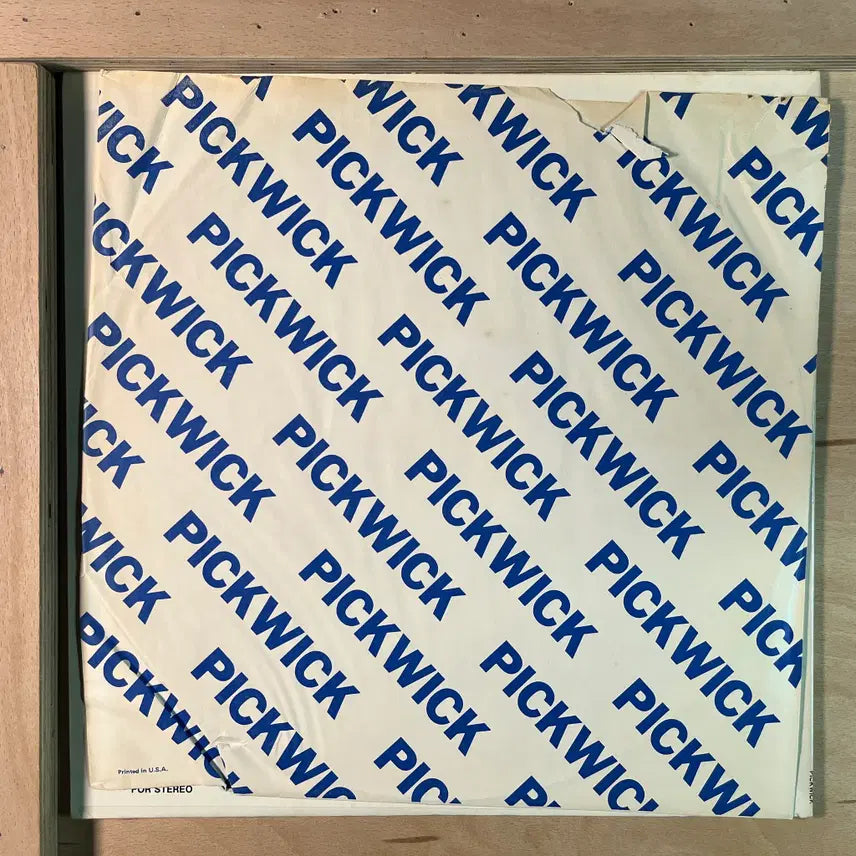 PICKWICK
WICK
CKWICK
WICK
PICKWICK
PICKWICK
PICK
ICKWICK
PICKWICK
PICKWICK
PICKWICK
PICKWICK
PICKWICK
PICKWICK
ICK
PICKWICK
PICKWICK
PICKW
WICK
PICKWICK
PICKWICK
PICKWICK
PICK
PICKWICK
PICKWIC
PICKWICK
PICKWI
PIC
PI
Printed in U.S.A.
FOR STEREO